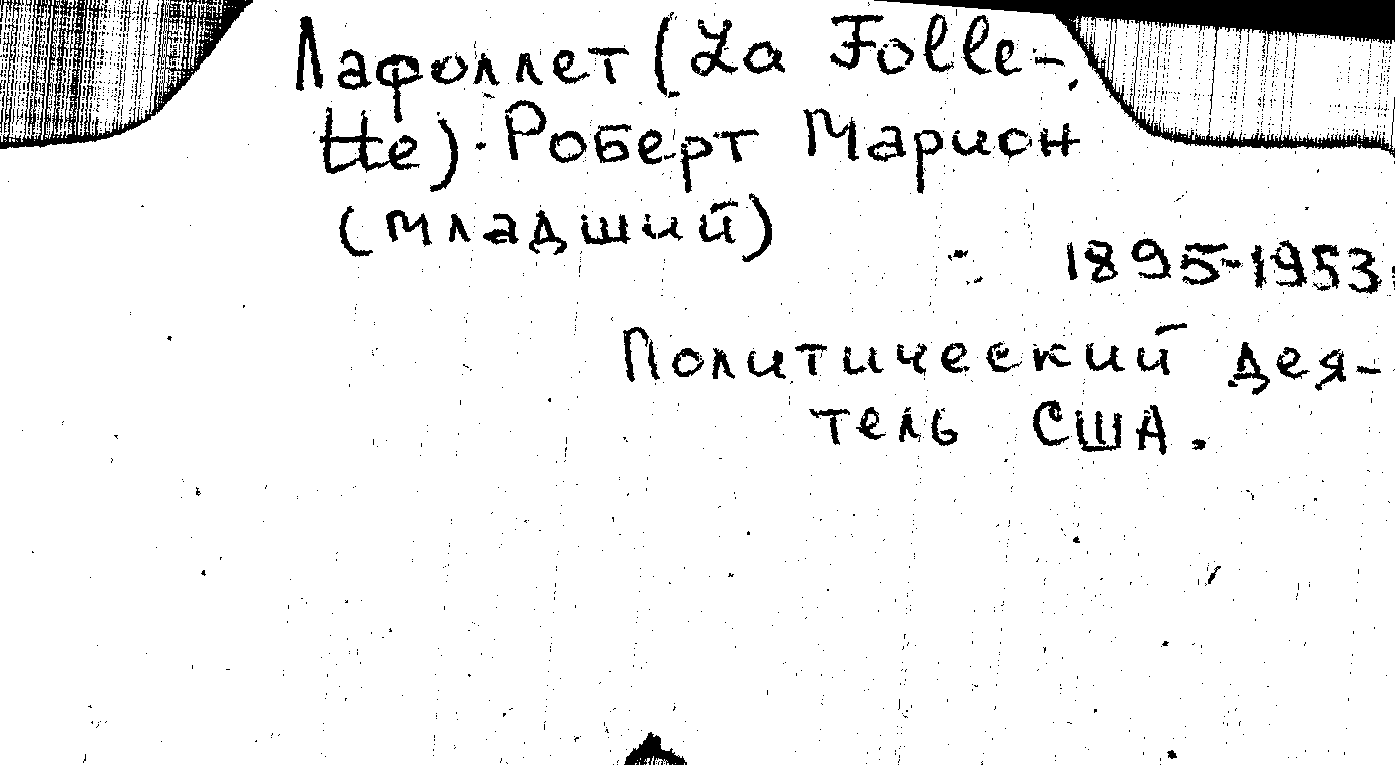 Лафоллет (La Folle-
tte). Роберт Марион
(младший)
1895-1953
Политический дея-
тель США.